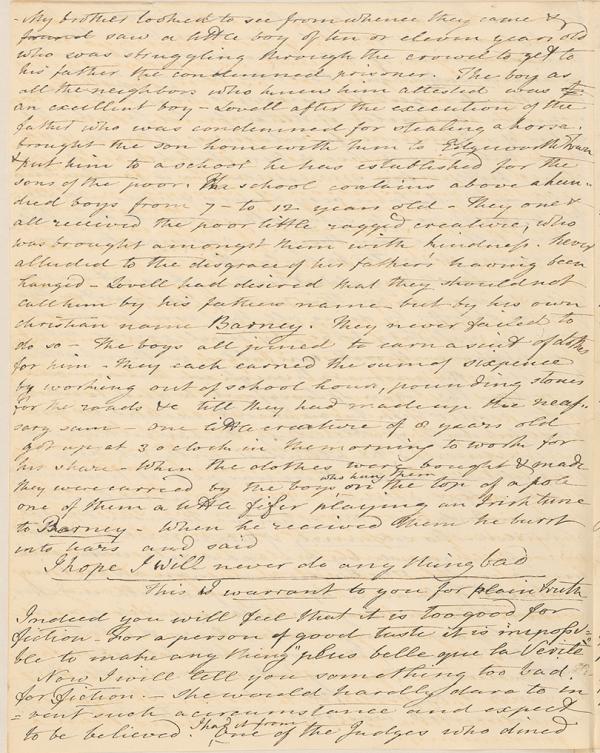 My brother looked to see from whence they came &
found saw a little boy of ten or eleven years old
who was struggling through the crowd to get to
his father the condemned prisoner. The boy as
all the neighbors who knew him attested was
an excellent boy - Lovell after the execution of the
father who was condemned for stealing a horse.
brought the son home with him to Edgeworth Town
& put him to a school he has established for the
sons of the poor. The school contains above a hun-
dred boys from 7 - to 12 years old - They one &
all received the poor little ragged creature, who
was brought amongst them with kindness. Never
alluded to the disgrace of his father's having been
hanged - Lovell had desired that they should not
call him by his fathers name but by his own
christian name Barney. They never failed to
do so - The boys all joined to earn a suit of clothes
for him - They each earned the sum of sixpence
by working out of school hours, pounding stones
for the roads &c till they had made up the neces-
sary sum - one little creature of 8 years old
got up at 3 o clock in the morning to work for
his share - When the clothes were bought & made
they were carried by the boys who hung them on the top of a pole
one of them a little fifer playing an Irish tune
to Barney - When he received them he burst
into tears and said
I hope I will never do any thing bad
This I warrant to you for plain truth
Indeed you will feel that it is too good for
fiction - For a person of good taste it is impossi-
ble to make any thing "plus belle que la Verité
Now I will tell you something too bad
for fiction. - She would hardly dare to in
=vent such a circumstance and expect
to be believed. I had it from one of the Judges who dined